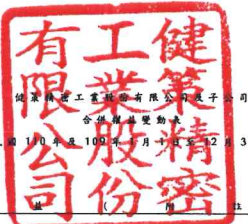 健策精密
工業股份
有限公司
健策精密工業股份有限公司及子公司
合併權益變動表
國 110 年及 109 年 1 月 1 日至 12 月 3
益 ( 附 註